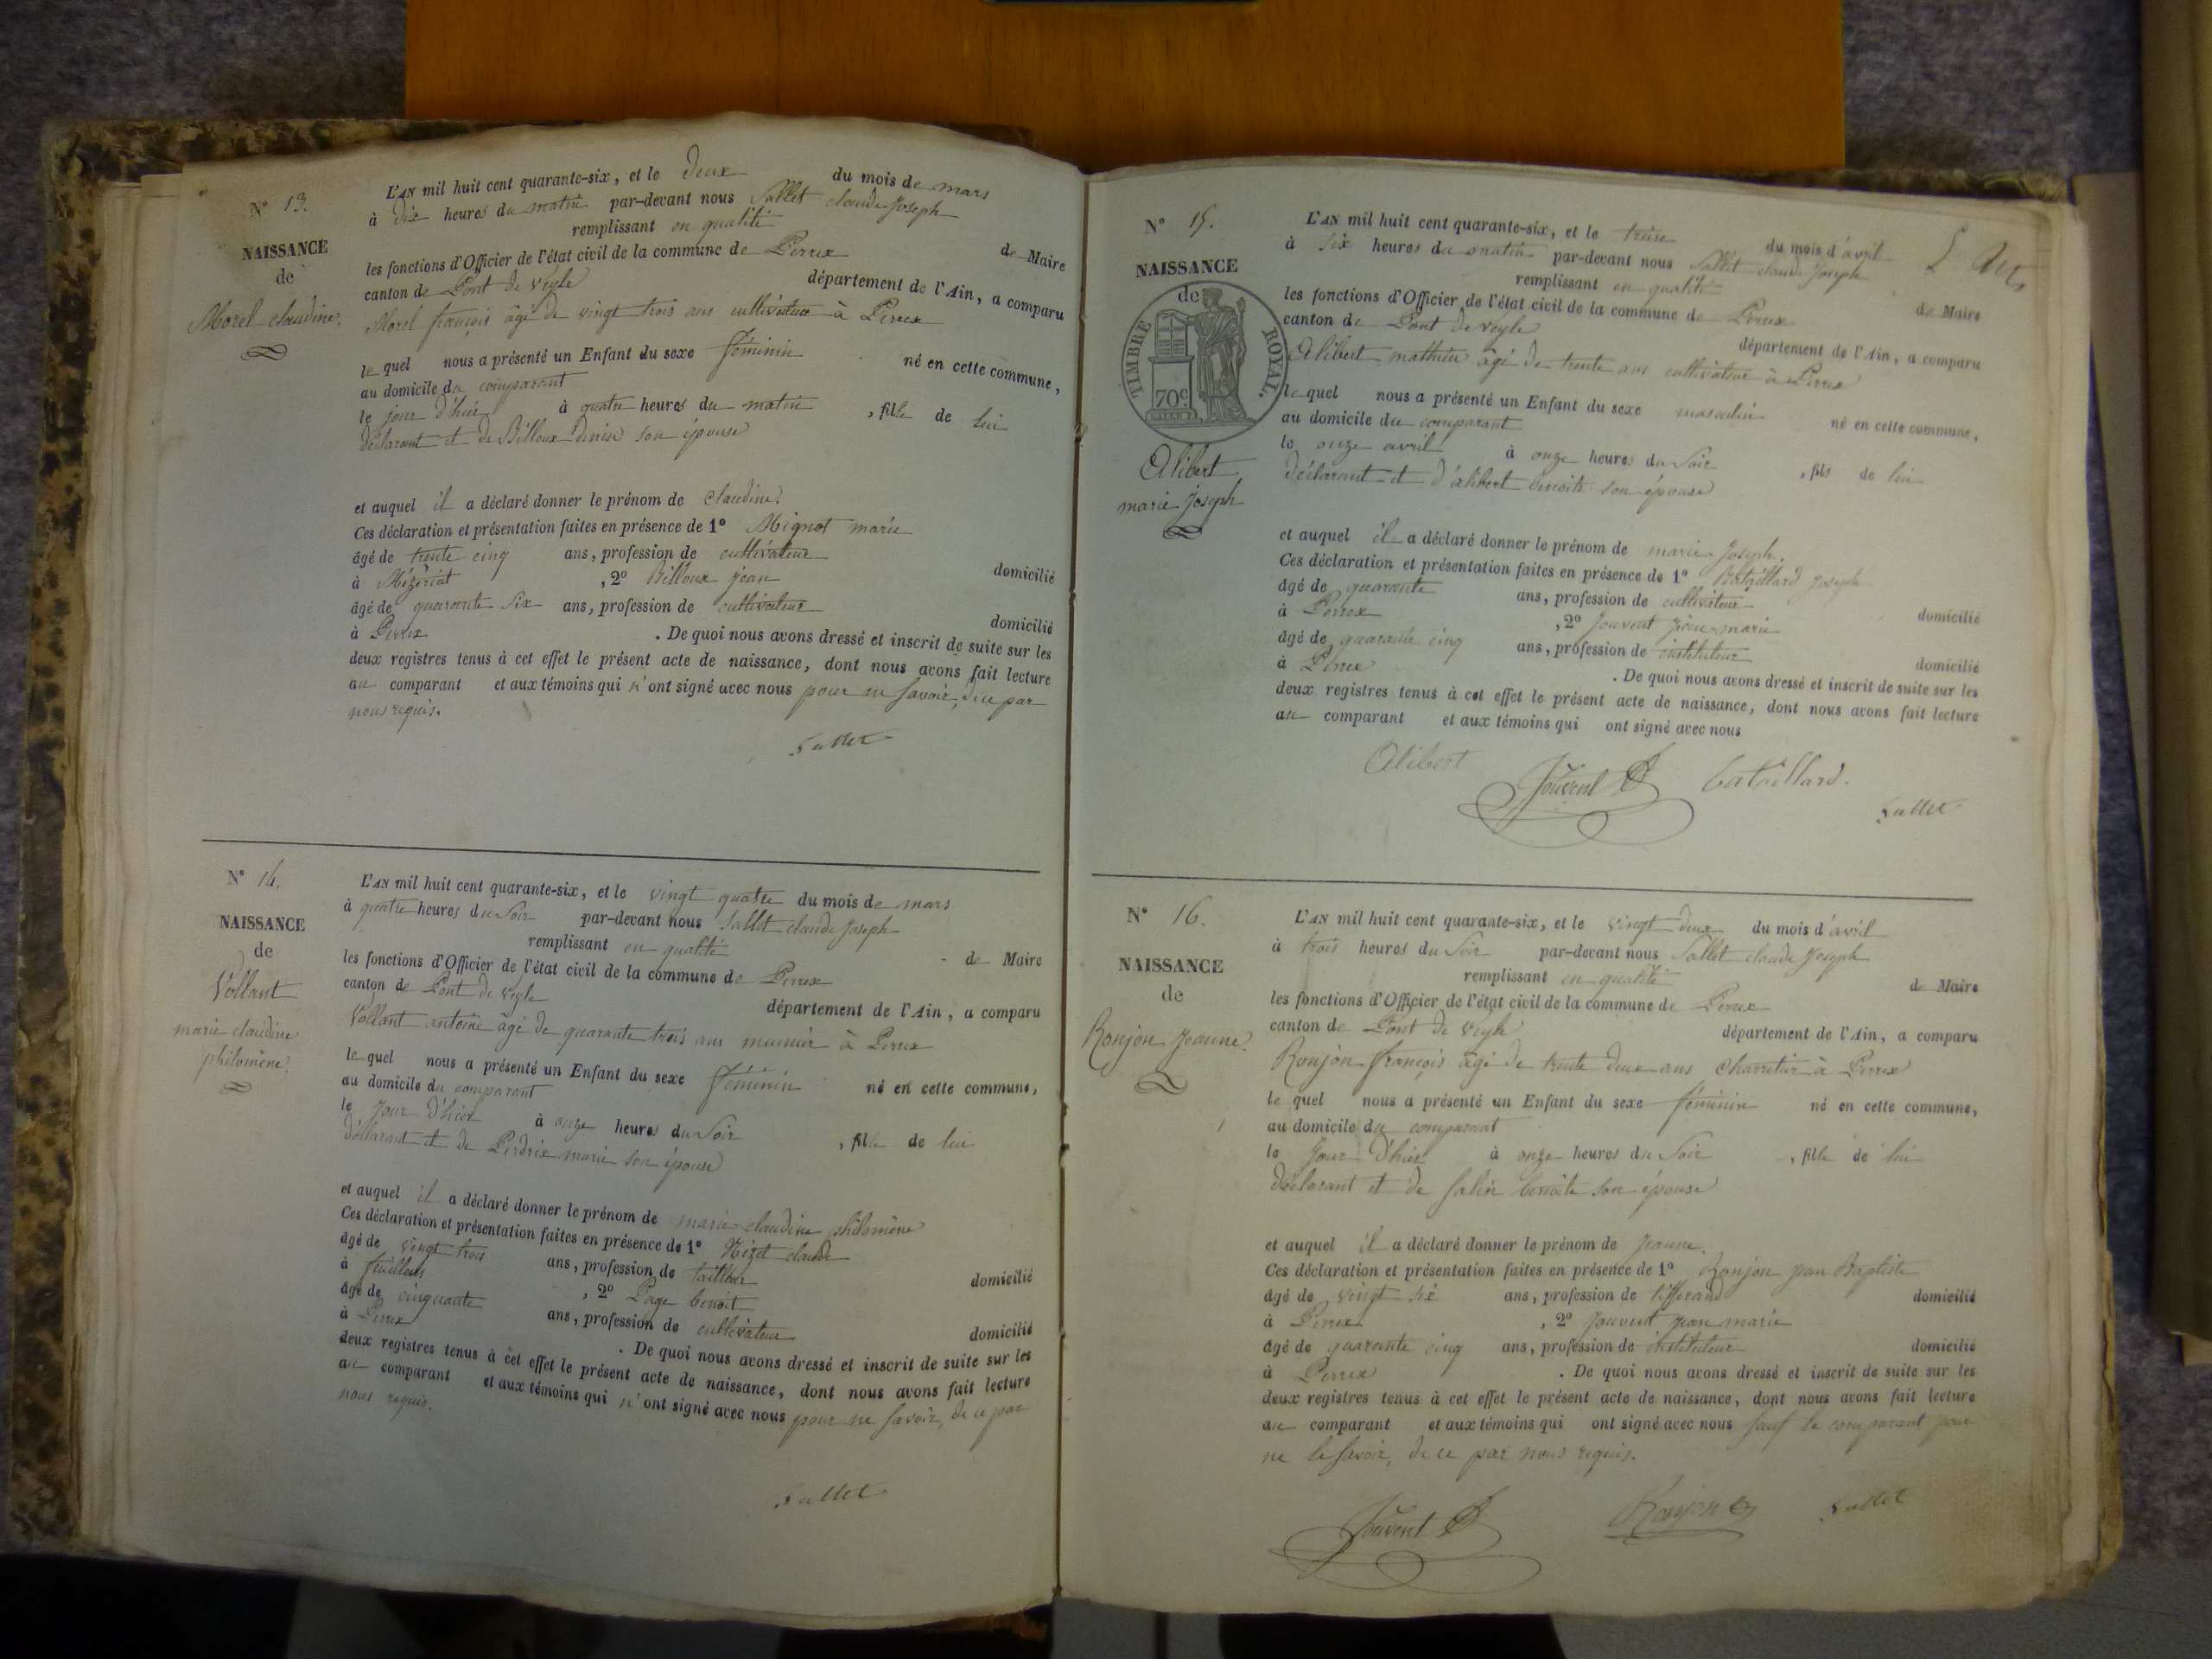 N° 13.
NAISSANCE
de
Morel claudine.
L'AN mil huit cent quarante-six, et le deux du mois de mars
à dix heures du matin par-devant nous Sallet claude Joseph
remplissant en qualité de Maire
les fonctions d'Officier de l'état civil de la commune de Perrex
canton de Pont de Veyle département de l'Ain, a comparu
Morel françois âgé de vingt trois ans cultivateur à Perrex
le quel nous a présenté un Enfant du sexe féminin né en cette commune,
au domicile du comparant
le jour d'hier à quatre heures du matin , fille de lui
déclarant et de Billoux denise son épouse
et auquel il a déclaré donner le prénom de Claudine.
Ces déclaration et présentation faites en présence de 1° Mignot marie
âgé de trente cinq ans, profession de cultivateur domicilié
à Mézériat , 2° Billoux jean
âgé de quarante six ans, profession de cultivateur domicilié
à Perrex . De quoi nous avons dressé et inscrit de suite sur les
deux registres tenus à cet effet le présent acte de naissance, dont nous avons fait lecture
au comparant et aux témoins qui n'ont signé avec nous pour ne savoir, de ce par
nous requis.
Sallet
N° 14.
NAISSANCE
de
Vollant
marie claudine
philomène.
L'AN mil huit cent quarante-six, et le vingt quatre du mois de mars
à quatre heures du soir par-devant nous Sallet claude Joseph
remplissant en qualité de Maire
les fonctions d'Officier de l'état civil de la commune de Perrex
canton de Pont de Veyle département de l'Ain, a comparu
Vollant antoine âgé de quarante trois ans meunier à Perrex
le quel nous a présenté un Enfant du sexe féminin né en cette commune,
au domicile du comparant
le jour d'hier à onze heures du soir , fille de lui
déclarant et de Perdrix marie son épouse
et auquel il a déclaré donner le prénom de marie claudine philomène
Ces déclaration et présentation faites en présence de 1° Nizet claude
âgé de vingt trois ans, profession de tailleur domicilié
à feuillens , 2° Page benoit
âgé de cinquante ans, profession de cultivateur domicilié
à Perrex . De quoi nous avons dressé et inscrit de suite sur les
deux registres tenus à cet effet le présent acte de naissance, dont nous avons fait lecture
au comparant et aux témoins qui n'ont signé avec nous pour ne savoir, de ce par
nous requis.
Sallet
N° 15.
NAISSANCE
de
TIMBRE ROYAL.
70c.
Alibert
marie Joseph
L'AN mil huit cent quarante-six, et le treize du mois d'avril
à six heures du matin par-devant nous Sallet claude Joseph
remplissant en qualité de Maire
les fonctions d'Officier de l'état civil de la commune de Perrex
canton de Pont de Veyle département de l'Ain, a comparu
Alibert mathieu âgé de trente ans cultivateur à Perrex
le quel nous a présenté un Enfant du sexe masculin né en cette commune,
au domicile du comparant
le onze avril à onze heures du soir , fils de lui
déclarant et d'alibert benoite son épouse
et auquel il a déclaré donner le prénom de marie Joseph.
Ces déclaration et présentation faites en présence de 1° Bataillard Joseph
âgé de quarante ans, profession de cultivateur domicilié
à Perrex , 2° Jouvent jean marie
âgé de quarante cinq ans, profession de instituteur domicilié
à Perrex . De quoi nous avons dressé et inscrit de suite sur les
deux registres tenus à cet effet le présent acte de naissance, dont nous avons fait lecture
au comparant et aux témoins qui ont signé avec nous
Alibert Jouvent bataillard.
Sallet
N° 16.
NAISSANCE
de
Ronjon Jeanne.
L'AN mil huit cent quarante-six, et le vingt deux du mois d'avril
à trois heures du soir par-devant nous Sallet claude Joseph
remplissant en qualité de Maire
les fonctions d'Officier de l'état civil de la commune de Perrex
canton de Pont de Veyle département de l'Ain, a comparu
Ronjon françois âgé de trente deux ans charretier à Perrex
le quel nous a présenté un Enfant du sexe féminin né en cette commune,
au domicile du comparant
le jour d'hier à onze heures du soir , fille de lui
déclarant et de Salin benoite son épouse
et auquel il a déclaré donner le prénom de Jeanne.
Ces déclaration et présentation faites en présence de 1° Ronjon jean Baptiste
âgé de vingt six ans, profession de tisserand domicilié
à Perrex , 2° Jouvent jean marie
âgé de quarante cinq ans, profession de instituteur domicilié
à Perrex . De quoi nous avons dressé et inscrit de suite sur les
deux registres tenus à cet effet le présent acte de naissance, dont nous avons fait lecture
au comparant et aux témoins qui ont signé avec nous sauf le comparant pour
ne le savoir, de ce par nous requis.
Jouvent Ronjon Sallet